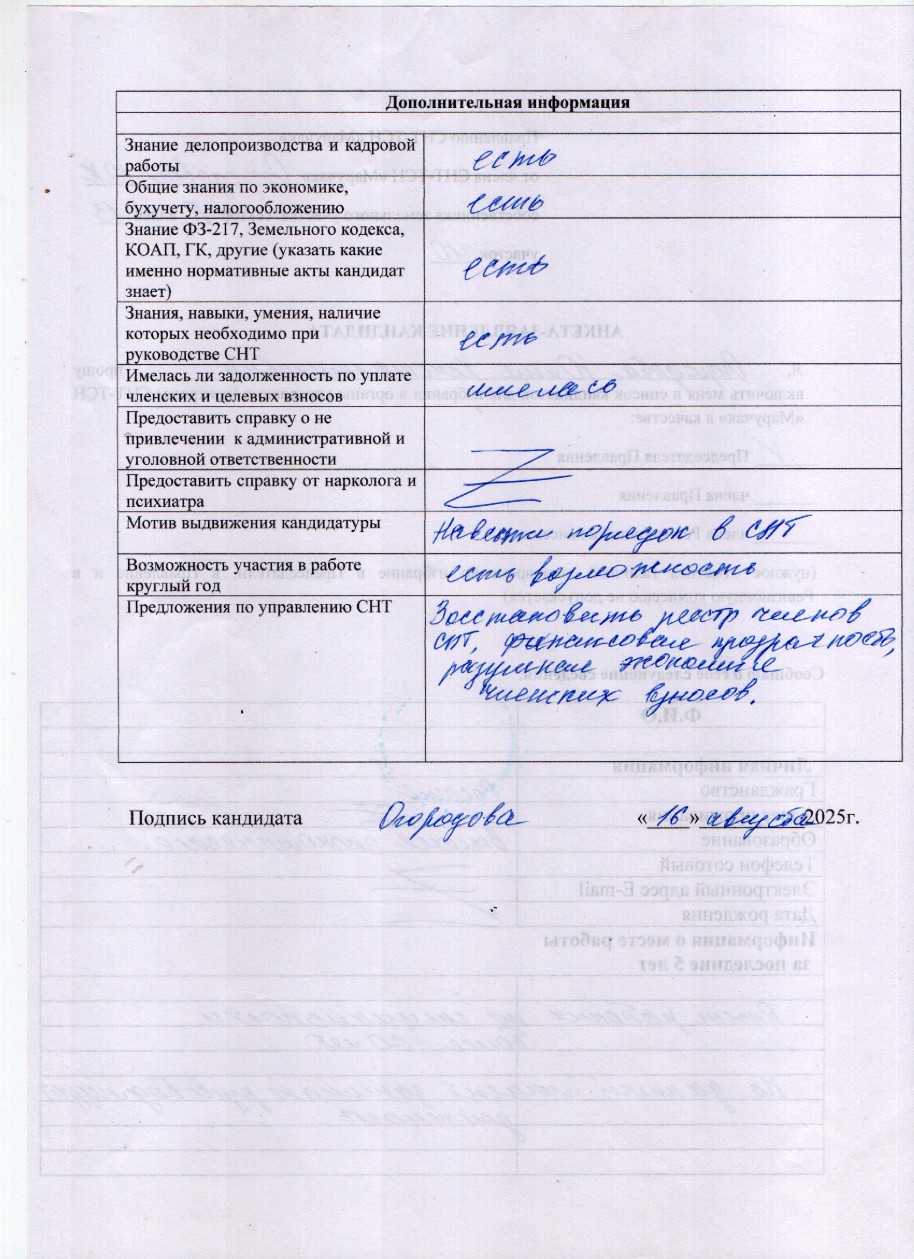 Дополнительная информация
Знание делопроизводства и кадровой
работы
есть
Общие знания по экономике,
бухучету, налогообложению
есть
Знание ФЗ-217, Земельного кодекса,
КОАП, ГК, другие (указать какие
именно нормативные акты кандидат
знает)
есть
Знания, навыки, умения, наличие
которых необходимо при
руководстве СНТ
есть
Имелась ли задолженность по уплате
членских и целевых взносов
имелась
Предоставить справку о не
привлечении к административной и
уголовной ответственности
Предоставить справку от нарколога и
психиатра
Мотив выдвижения кандидатуры
Навести порядок в СНТ
Возможность участия в работе
круглый год
есть возможность
Предложения по управлению СНТ
Восстановить реестр членов
СНТ, финансовая прозрачность,
разумная экономия
членских взносов.
Подпись кандидата Огородова « 16 » августа 2025г.